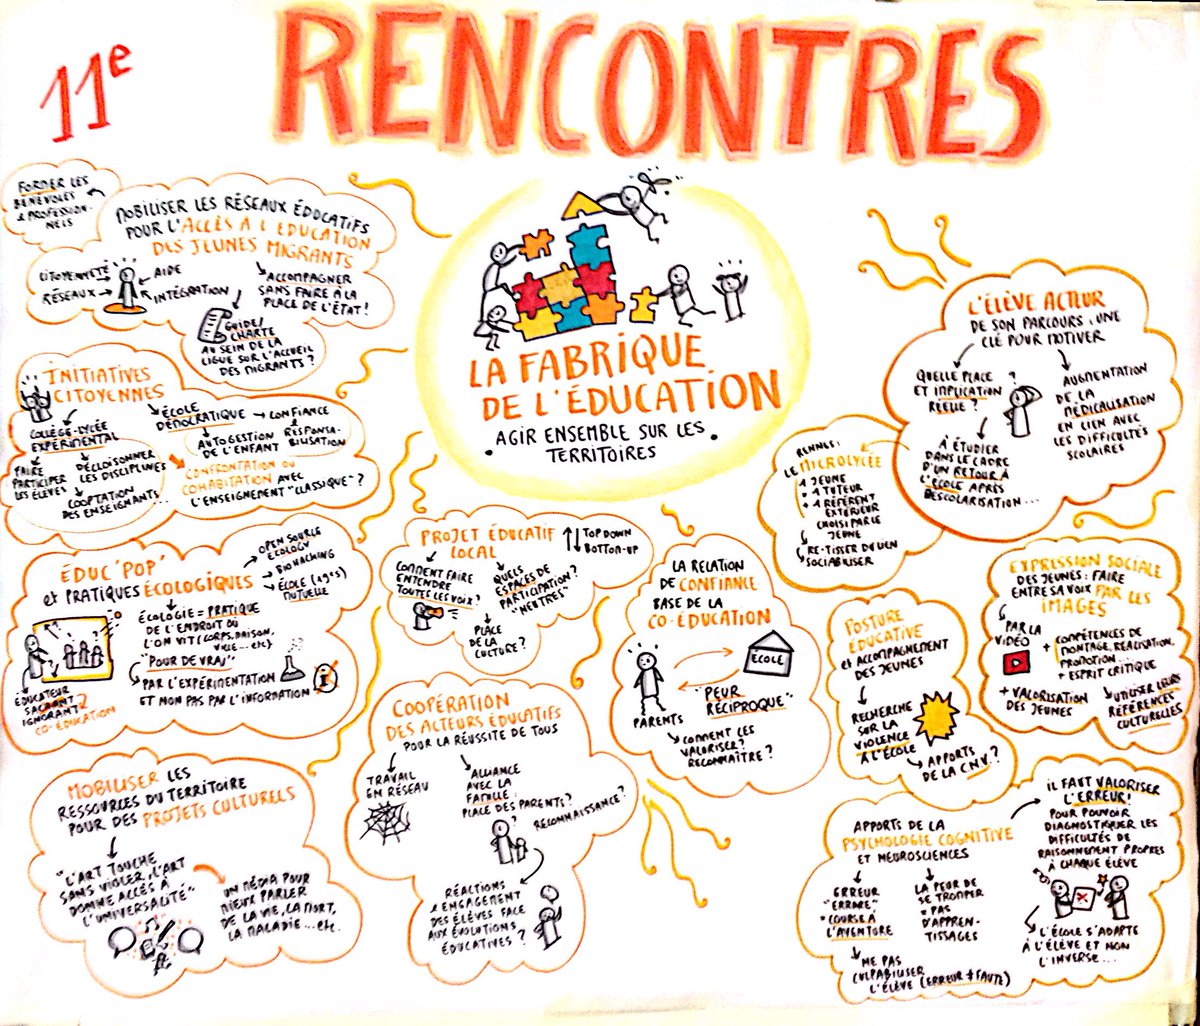 11e
RENCONTRES
LA FABRIQUE
DE L'ÉDUCATION
AGIR ENSEMBLE SUR LES
TERRITOIRES
FORMER LES
BÉNÉVOLES
& PROFESSION-
NELS
MOBILISER LES RÉSEAUX ÉDUCATIFS
POUR L'ACCÈS À L'EDUCATION
DES JEUNES MIGRANTS
CITOYENNETÉ
AIDE
RÉSEAUX
INTÉGRATION
ACCOMPAGNER
SANS FAIRE À LA
PLACE DE L'ÉTAT!
GUIDE/
CHARTE
AU SEIN DE LA
LIGUE SUR L'ACCUEIL
DES MIGRANTS?
INITIATIVES
CITOYENNES
COLLÈGE-LYCÉE
EXPÉRIMENTAL
FAIRE
PARTICIPER
LES ÉLÈVES
DÉCLOISONNER
LES DISCIPLINES
COOPTATION
DES ENSEIGNANTS...
ÉCOLE
DÉMOCRATIQUE → CONFIANCE
& RESPONSA-
BILISATION
AUTOGESTION
DE L'ENFANT
CONFRONTATION OU
COHABITATION AVEC
L'ENSEIGNEMENT "CLASSIQUE"?
ÉDUC 'POP'
et PRATIQUES ÉCOLOGIQUES
OPEN SOURCE
ECOLOGY
BIOHACKING
ÉCOLE (19e s)
MUTUELLE
ÉCOLOGIE = PRATIQUE
DE L'ENDROIT OÙ
L'ON VIT (CORPS, MAISON,
VILLE... etc)
"POUR DE VRAI"
PAR L'EXPÉRIMENTATION
ET NON PAS PAR L'INFORMATION
ÉDUCATEUR
SACHANT
IGNORANT?
CO-ÉDUCATION
MOBILISER LES
RESSOURCES DU TERRITOIRE
POUR DES PROJETS CULTURELS
"L'ART TOUCHE
SANS VIOLER, L'ART
DONNE ACCÈS À
L'UNIVERSALITÉ"
UN MÉDIA POUR
MIEUX PARLER
DE LA VIE, LA MORT,
LA MALADIE... etc.
PROJET ÉDUCATIF
LOCAL
TOP DOWN
BOTTOM-UP
COMMENT FAIRE
ENTENDRE
TOUTES LES VOIX?
QUELS
ESPACES DE
PARTICIPATION?
"NEUTRES"
PLACE
DE LA
CULTURE?
COOPÉRATION
DES ACTEURS ÉDUCATIFS
POUR LA RÉUSSITE DE TOUS
TRAVAIL
EN RÉSEAU
ALLIANCE
AVEC LA
FAMILLE:
PLACE DES PARENTS?
RECONNAISSANCE?
RÉACTIONS
& ENGAGEMENT
DES ÉLÈVES FACE
AUX ÉVOLUTIONS
ÉDUCATIVES?
LA RELATION
DE CONFIANCE
BASE DE LA
CO-ÉDUCATION
ÉCOLE
PARENTS
"PEUR
RÉCIPROQUE"
COMMENT LES
VALORISER?
RECONNAÎTRE?
L'ÉLÈVE ACTEUR
DE SON PARCOURS, UNE
CLÉ POUR MOTIVER
QUELLE PLACE ?
ET IMPLICATION
RÉELLE?
AUGMENTATION
DE LA
MÉDICALISATION
EN LIEN AVEC
LES DIFFICULTÉS
SCOLAIRES
À ÉTUDIER
DANS LE CADRE
D'UN RETOUR À
L'ÉCOLE APRÈS
DESCOLARISATION...
RENNES:
LE MICROLYCÉE
1 JEUNE
+ 1 TUTEUR
+ 1 RÉFÉRENT
EXTÉRIEUR
CHOISI PAR LE
JEUNE
RE-TISSER DU LIEN
SOCIABILISER
POSTURE
ÉDUCATIVE
et ACCOMPAGNEMENT
DES JEUNES
RECHERCHE
SUR LA
VIOLENCE
À L'ÉCOLE
APPORTS
DE LA C.N.V.?
EXPRESSION SOCIALE
DES JEUNES: FAIRE
ENTRE SA VOIX PAR LES
IMAGES
PAR LA
VIDÉO
+ COMPÉTENCES DE
MONTAGE, RÉALISATION,
PROMOTION...
+ ESPRIT CRITIQUE
+ VALORISATION
DES JEUNES
UTILISER LEURS
RÉFÉRENCES
CULTURELLES
APPORTS DE LA
PSYCHOLOGIE COGNITIVE
ET NEUROSCIENCES
ERREUR
"ERRARE"
= COURSE À
L'AVENTURE
LA PEUR DE
SE TROMPER
= PAS
D'APPREN-
TISSAGES
NE PAS
CULPABILISER
L'ÉLÈVE (ERREUR ≠ FAUTE)
IL FAUT VALORISER
L'ERREUR!
POUR POUVOIR
DIAGNOSTIQUER LES
DIFFICULTÉS DE
RAISONNEMENT PROPRES
À CHAQUE ÉLÈVE
L'ÉCOLE S'ADAPTE
À L'ÉLÈVE ET NON
L'INVERSE...